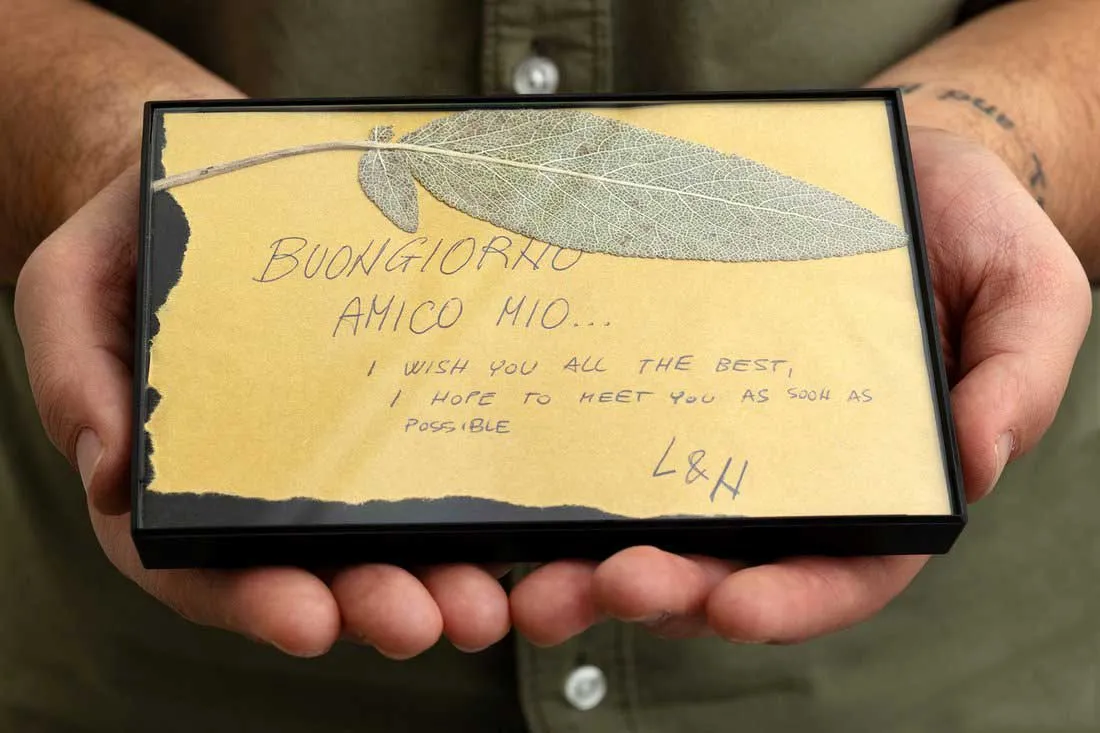 BUONGIORNO
AMICO MIO...
I WISH YOU ALL THE BEST,
I HOPE TO MEET YOU AS SOON AS
POSSIBLE
L&H